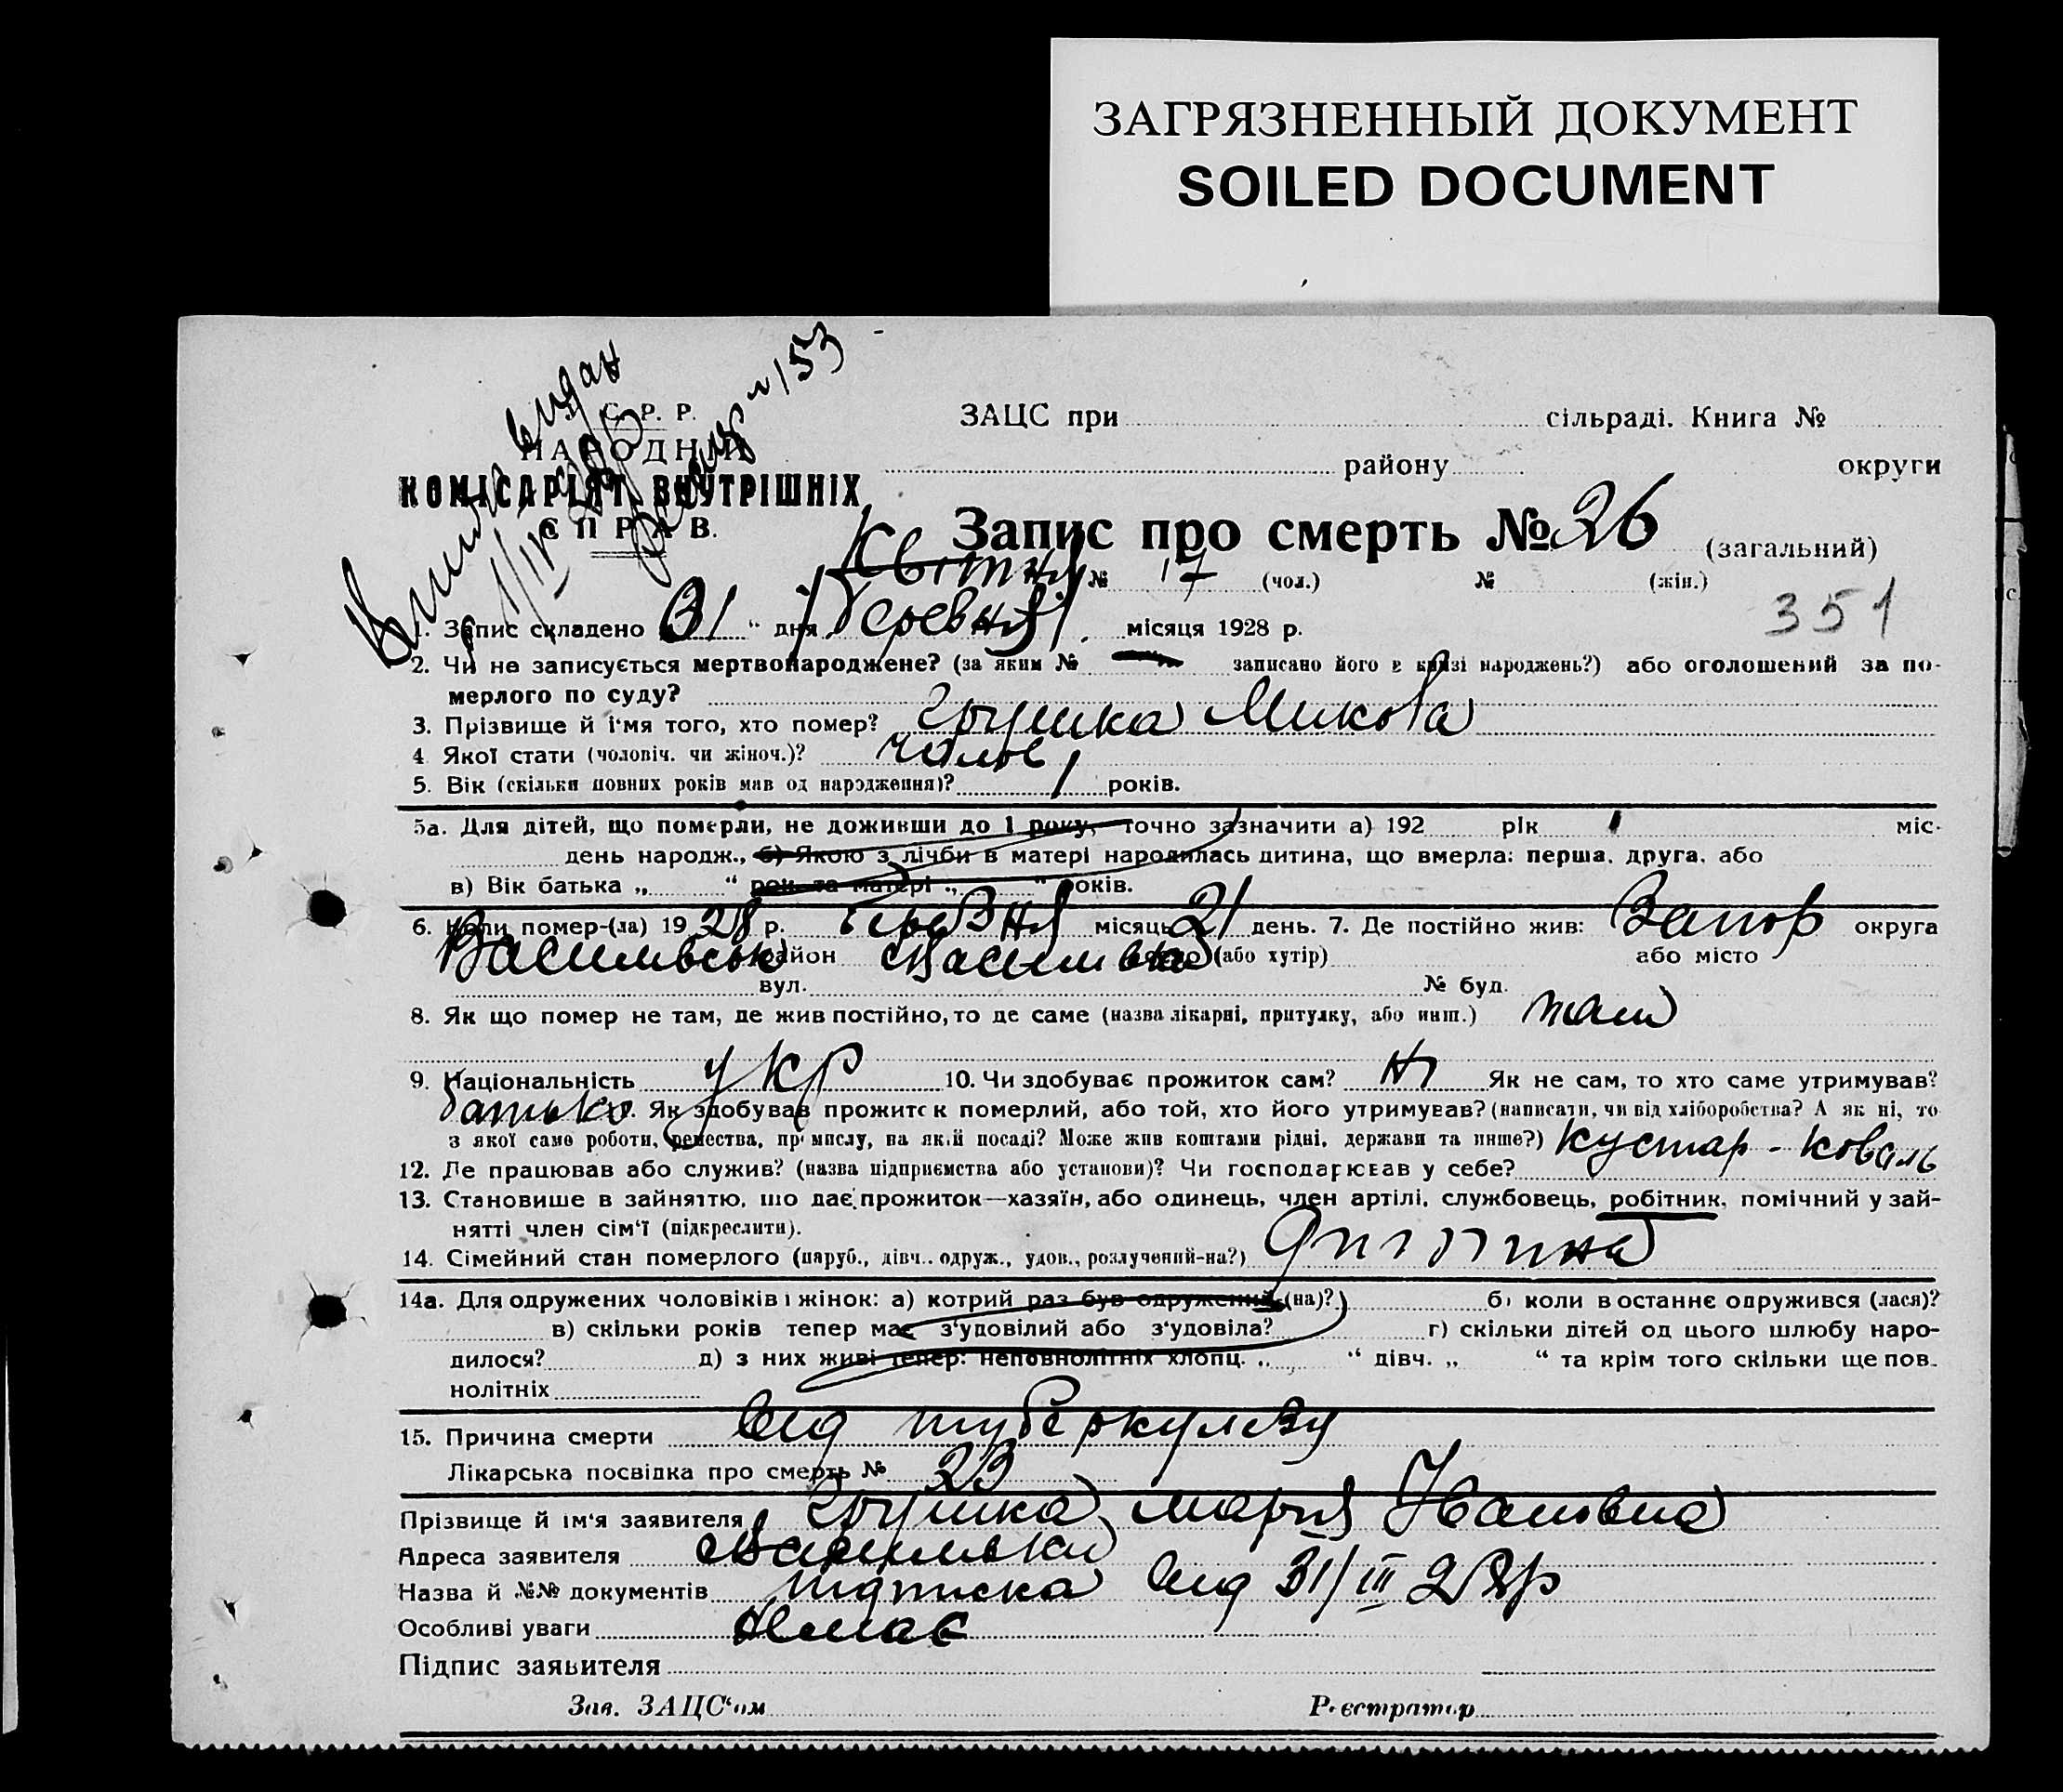 ЗАГРЯЗНЕННЫЙ ДОКУМЕНТ
SOILED DOCUMENT
С. Р. Р.
НАРОДНИЙ
КОМІСАРІЯТ ВНУТРІШНІХ
СПРАВ.
видан
№ 153
ЗАЦС при сільраді. Книга №
району округи
Запис про смерть № 26 (загальний)
Квітня № 17 (чол.) № (жін.)
351
1. Запис складено 31 " дня Березня місяця 1928 р.
2. Чи не записується мертвонароджене? (за яким № записано його в книзі народжень?) або оголошений за по-
мерлого по суду?
3. Прізвище й ім'я того, хто помер? Грушка Микола
4 Якої стати (чоловіч. чи жіноч.)? чолов
5. Вік (скільки повних років мав од народження)? 1 років.
5а. Для дітей, що померли, не доживши до 1 року, точно зазначити а) 192 рік міс.
день народж., б) Якою з лічби в матері народилась дитина, що вмерла: перша, друга, або
в) Вік батька „ “ рок. та матері „ “ років.
6. Коли помер-(ла) 1928 р. березня місяць 21 день. 7. Де постійно жив: Запор округа
Васильвськ район Василівка (або хутір) або місто
вул. № буд.
8. Як що помер не там, де жив постійно, то де саме (назва лікарні, притулку, або инш.) там
9. Національність укр 10. Чи здобуває прожиток сам? ні Як не сам, то хто саме утримував?
батько Як здобував прожиток померлий, або той, хто його утримував? (написати, чи від хліборобства? А як ні, то
з якої саме роботи, ремества, промислу, на якій посаді? Може жив коштами рідні, держави та инше?) Кустар - коваль
12. Де працював або служив? (назва підприємства або установи)? Чи господарював у себе?
13. Становище в зайняттю, що дає прожиток—хазяїн, або одинець, член артілі, службовець, робітник, помічний у зай-
нятті член сім'ї (підкреслити).
14. Сімейний стан померлого (паруб., дівч., одруж., удов., розлучений-на?)
14а. Для одружених чоловіків і жінок: а) котрий раз був одружений (на)? б) коли в останнє одружився (лася)?
в) скільки років тепер має з'удовілий або з'удовіла? г) скільки дітей од цього шлюбу наро-
дилося? д) з них живі тепер: неповнолітніх хлопц. „ “ дівч. „ “ та крім того скільки ще пов-
нолітніх
15. Причина смерти від туберкулезу
Лікарська посвідка про смерть № 23
Прізвище й ім'я заявителя Грушка Мария Ивановна
Адреса заявителя Василівка
Назва й №№ документів підписка від 31/III 28р
Особливі уваги немає
Підпис заявителя
Зав. ЗАЦС'ом Реєстратор